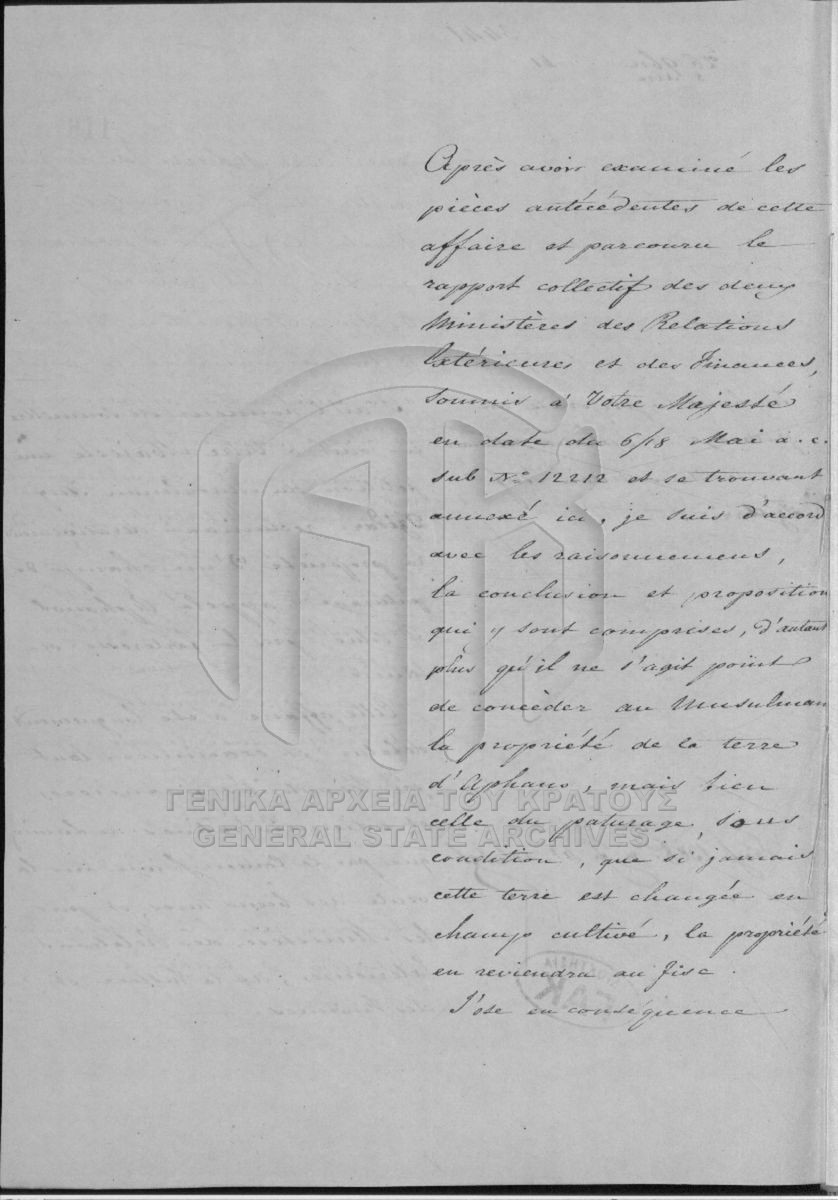 Après avoir examiné les
pièces antécédentes de cette
affaire et parcouru le
rapport collectif des deux
Ministères des Relations
Extérieures et des Finances,
soumis à Votre Majesté
en date du 6/18 Mai a. c.
sub No 12212 et se trouvant
annexé ici, je suis d'accord
avec les raisonnemens,
la conclusion et proposition
qui y sont comprises, d'autant
plus qu'il ne s'agit point
de concéder au Musulman
la propriété de la terre
d'Aphano, mais bien
ΓΕΝΙΚΑ ΑΡΧΕΙΑ ΤΟΥ ΚΡΑΤΟΥΣ
celle du paturage, sous
GENERAL STATE ARCHIVES
condition, que si jamais
cette terre est changée en
champ cultivé, la propriété
en reviendra au fisc.
J'ose en conséquence